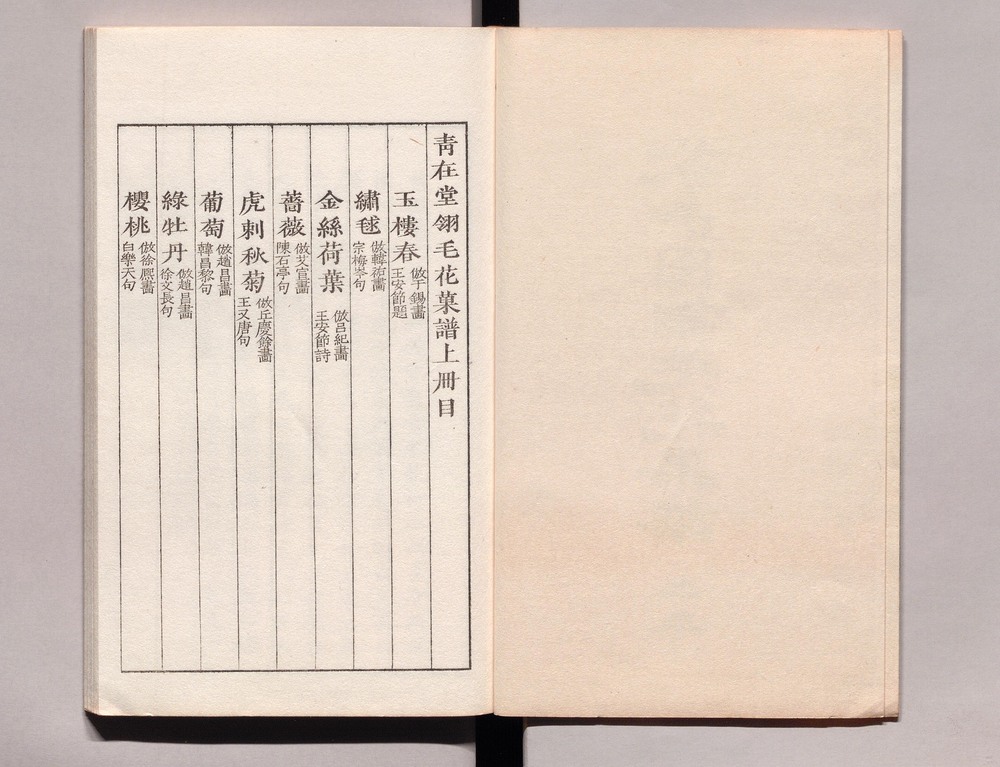 靑在堂翎毛花菓譜上冊目
玉樓春
倣于錫畵
王安節題
繡毬
倣韓祐畵
宗梅岑句
金絲荷葉
倣呂紀畵
王安節詩
薔薇
倣艾宣畵
陳石亭句
虎刺秋菊
倣丘慶餘畵
王又唐句
葡萄
倣趙昌畵
韓昌黎句
綠牡丹
倣趙昌畵
徐文長句
櫻桃
倣徐熈畵
白樂天句